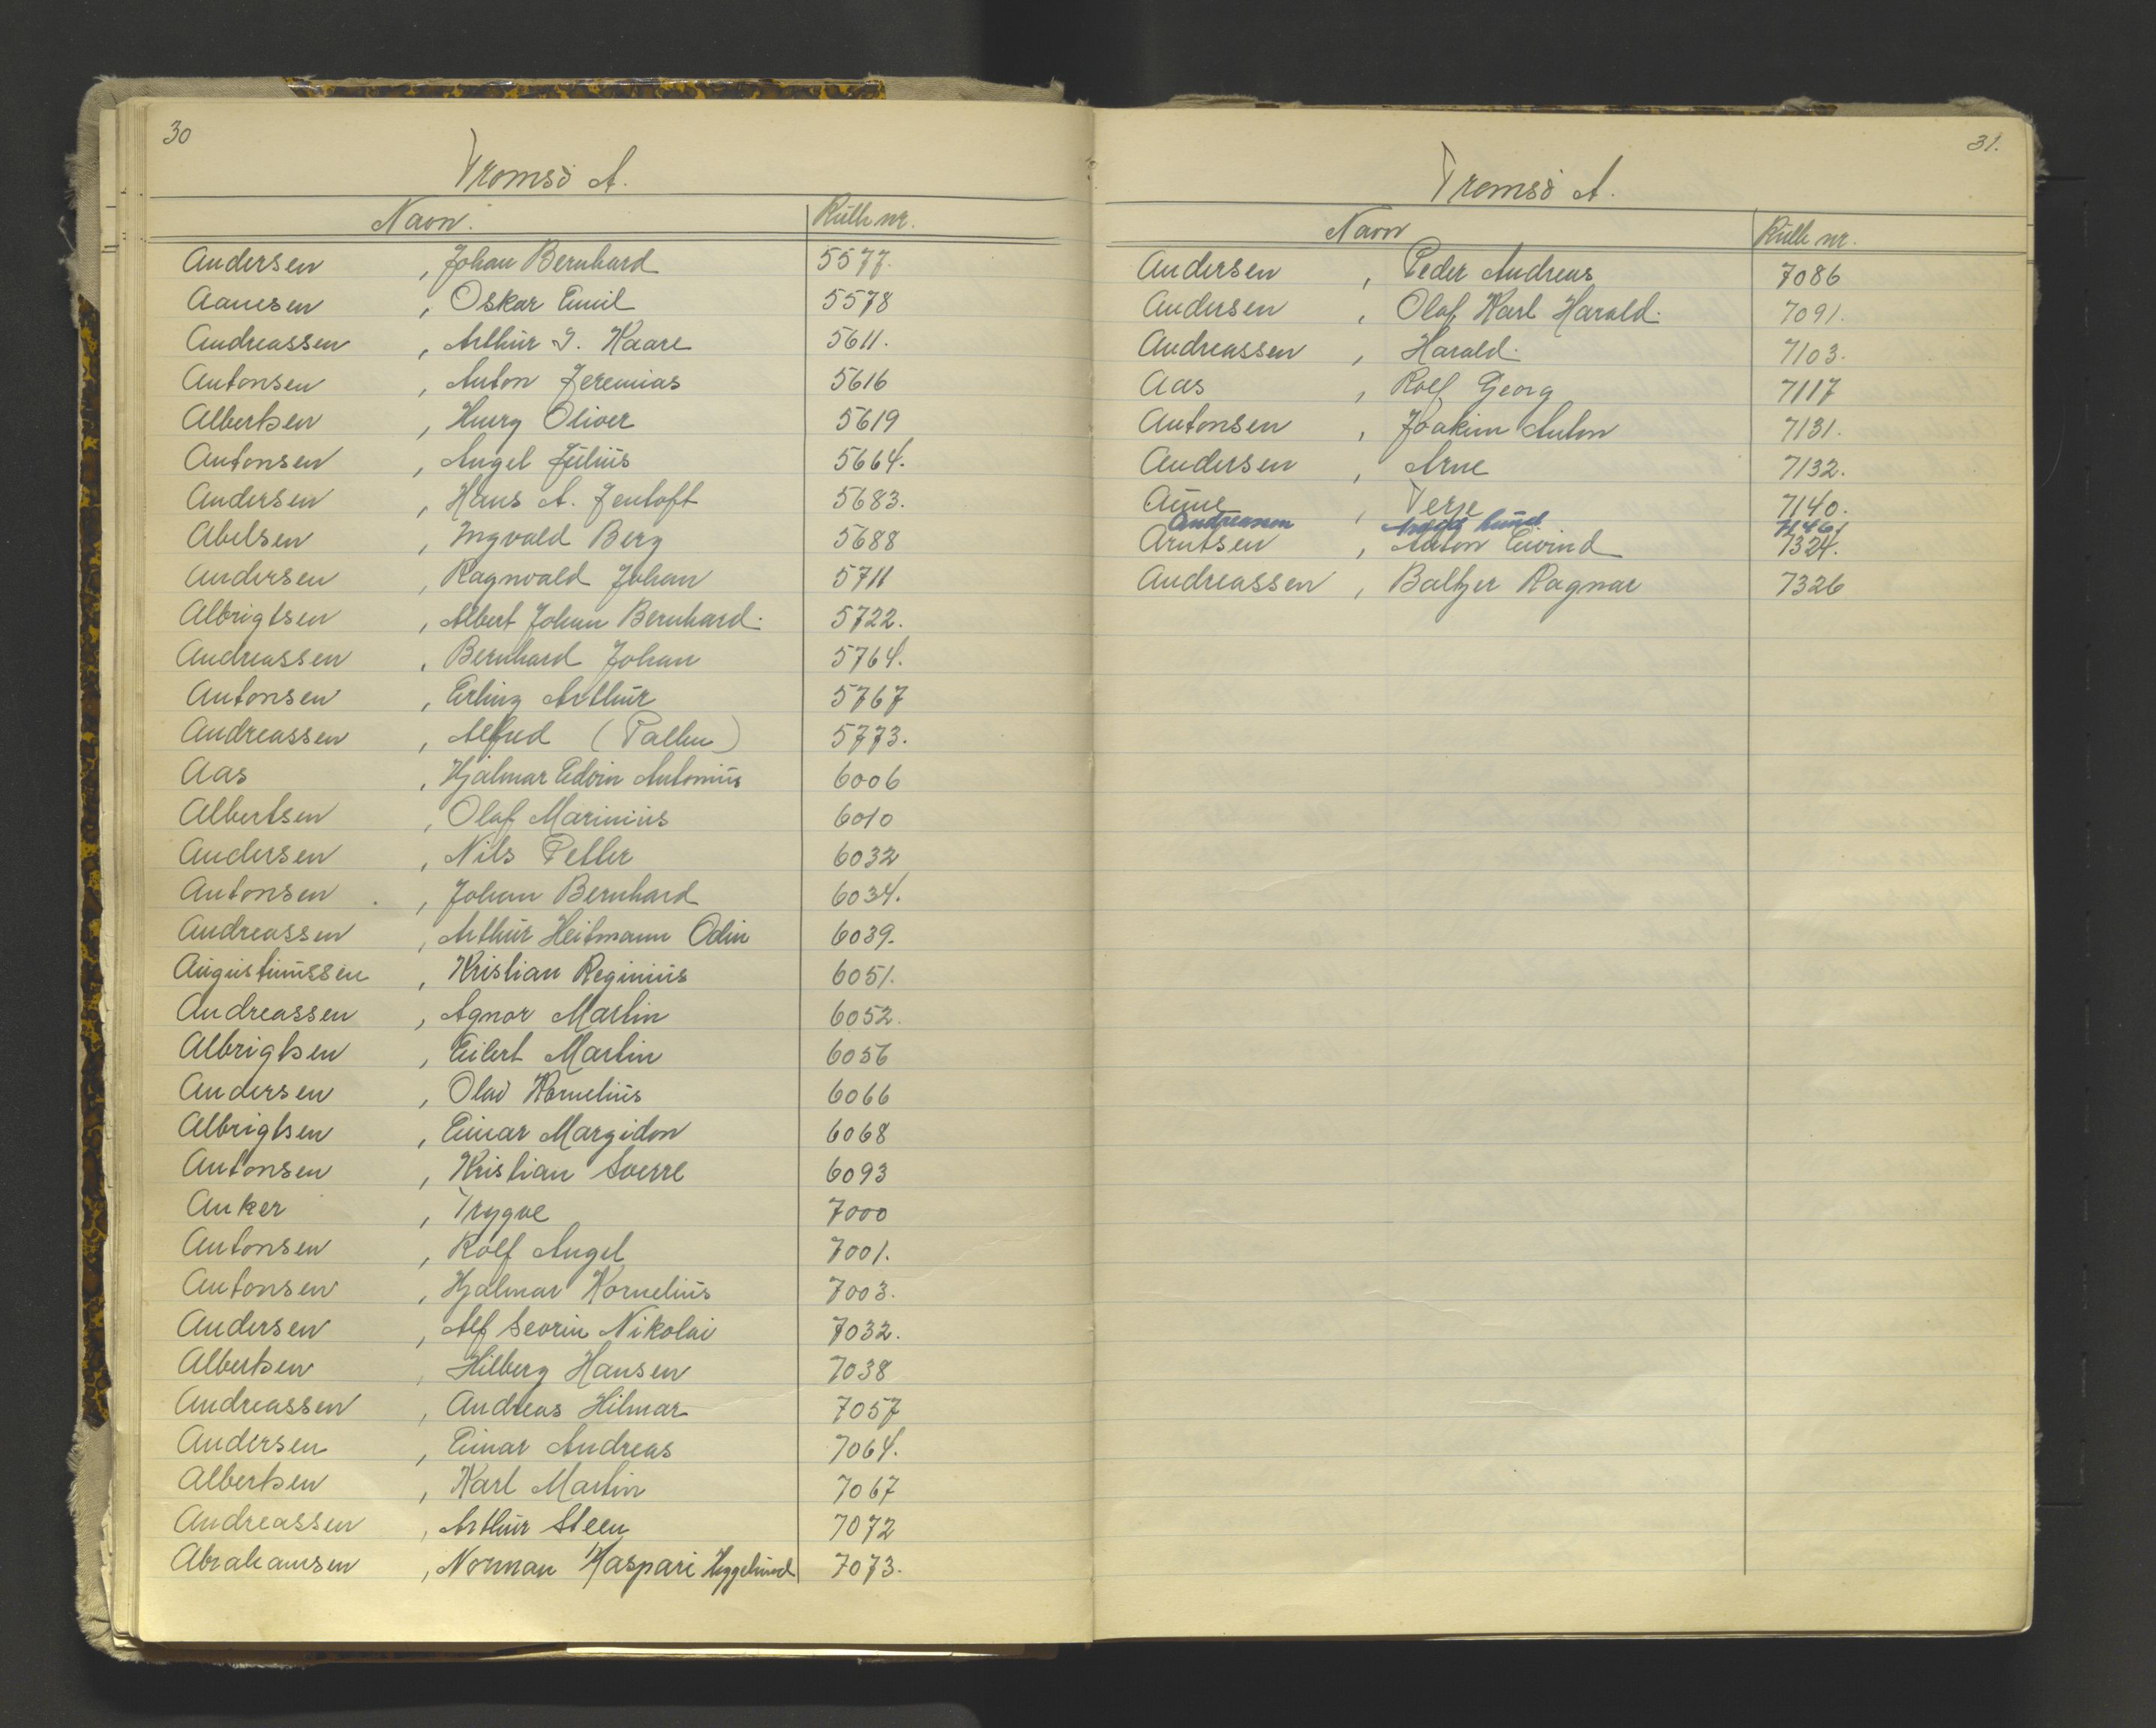 30
Tromsö A.
Navn. Rulle nr.
Andersen , Johan Bernhard 5577.
Aanesen , Oskar Emil 5578
Andreassen , Arthur I. Kaare 5611.
Antonsen , Anton Jeremias 5616
Albertsen , Henry Oliver 5619
Antonsen , Angel Julius 5664.
Andersen , Hans A. Jentoft 5683.
Abelsen , Ingvald Berg 5688
Andersen , Ragnvald Johan 5711
Albrigtsen , Albert Johan Bernhard. 5722.
Andreassen , Bernhard Johan 5764.
Antonsen , Erling Arthur 5767
Andreassen , Alfred ( ) 5773.
Aas , Hjalmar Edvin Antonius 6006
Albertsen , Olaf Marinius 6010
Andersen , Nils Petter 6032
Antonsen . , Johan Bernhard 6034.
Andreassen , Arthur Heitmann Odin 6039.
Augustinussen , Kristian Reginius 6051.
Andreassen , Agnor Martin 6052.
Albrigtsen , Eilert Martin 6056
Andersen , Olav Kornelius 6066
Albrigtsen , Einar Margidon 6068
Antonsen , Kristian Sverre 6093
Anker , Trygve 7000
Antonsen , Rolf Angel 7001.
Antonsen , Hjalmar Kornelius 7003.
Andersen , Alf Severin Nikolai 7032.
Albertsen , Hilberg Hansen 7038
Andreassen , Andreas Hilmar 7057
Andersen , Einar Andreas 7064.
Albertsen , Karl Martin 7067
Andreassen , Arthur Steen 7072
Abrahamsen , Norman Kaspari Hyggelund 7073.
31.
Tromsö A.
Navn Rulle nr.
Andersen , Peder Andreas 7086
Andersen , Olaf Karl Harald. 7091.
Andreassen , Harald. 7103.
Aas , Rolf Georg 7117
Antonsen , Joakim Anton 7131.
Andersen , Arne 7132.
Aune , Terje 7140.
Andreassen Lund 7146
Arntsen , Anton Eivind 7324.
Andreassen , Baltzer Ragnar 7326